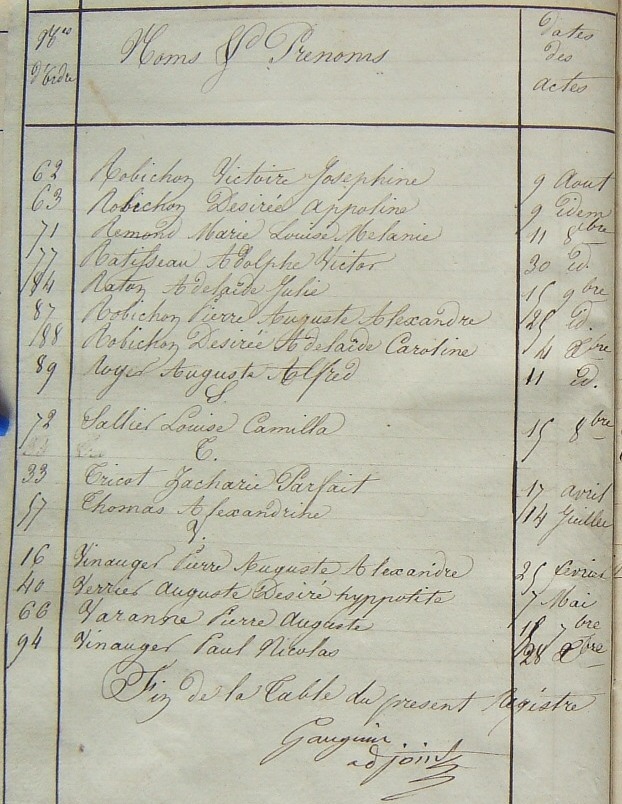 Nos d'Ordre Noms & Prenoms Dates des actes
62 Robichon Victoire Josephine 9 Aout
63 Robichon Desirée Appoline 9 idem
71 Remond Marie Louise Melanie 11 8bre
77 Ratisseau Adolphe Victor 30 id.
84 Raton Adelaïde Julie 15 9bre
87 Robichon Pierre Auguste Alexandre 25 id.
88 Robichon Desirée Adelaïde Caroline 4 Xbre
89 Royer Auguste Alfred 11 id.
S.
72 Sallier Louise Camilla 15 8bre
T.
33 Tricot Zacharie Parfait 17 avril
57 Thomas Alexandrine 14 Juillet
V.
16 Vinauger Pierre Auguste Alexandre 25 fevrier
40 Verrier Auguste Desiré hyppolite 7 Mai
66 Varanne Pierre Auguste 18 7bre
94 Vinauger Paul Nicolas 28 Xbre
Fin de la Table du present Régistre
adjoint